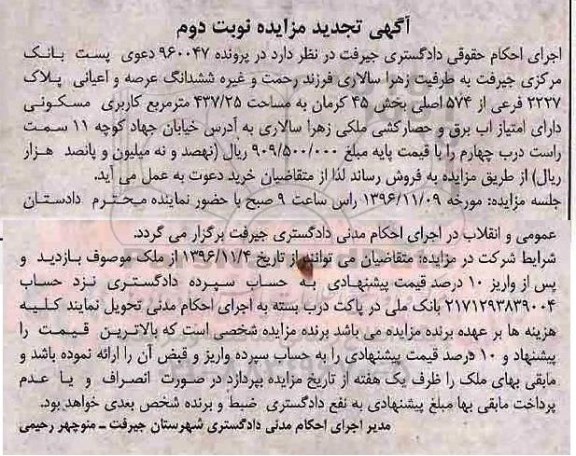 آگهی تجدید مزایده نوبت دوم
اجرای احکام حقوقی دادگستری جیرفت در نظر دارد در پرونده ۹۶۰۰۴۷ دعوی پست بانک
مرکزی جیرفت به طرفیت زهرا سالاری فرزند رحمت و غیره ششدانگ عرصه و اعیانی پلاک
۲۲۲۷ فرعی از ۵۷۴ اصلی بخش ۴۵ کرمان به مساحت ۴۳۷/۲۵ مترمربع کاربری مسکونی
دارای امتیاز اب برق و حصارکشی ملکی زهرا سالاری به آدرس خیابان جهاد کوچه ۱۱ سمت
راست درب چهارم را با قیمت پایه مبلغ ۹۰۹/۵۰۰/۰۰۰ ریال (نهصد و نه میلیون و پانصد هزار
ریال) از طریق مزایده به فروش رساند لذا از متقاضیان خرید دعوت به عمل می آید.
جلسه مزایده: مورخه ۱۳۹۶/۱۱/۰۹ راس ساعت ۹ صبح با حضور نماینده محترم دادستان
عمومی و انقلاب در اجرای احکام مدنی دادگستری جیرفت برگزار می گردد.
شرایط شرکت در مزایده: متقاضیان می توانند از تاریخ ۱۳۹۶/۱۱/۴ از ملک موصوف بازدید و
پس از واریز ۱۰ درصد قیمت پیشنهادی به حساب سپرده دادگستری نزد حساب
۲۱۷۱۲۹۳۸۳۹۰۰۴ بانک ملی در پاکت درب بسته به اجرای احکام مدنی تحویل نمایند کلیه
هزینه ها بر عهده برنده مزایده می باشد برنده مزایده شخصی است که بالاترین قیمت را
پیشنهاد و ۱۰ درصد قیمت پیشنهادی را به حساب سپرده واریز و قبض آن را ارائه نموده باشد و
مابقی بهای ملک را ظرف یک هفته از تاریخ مزایده بپردازد در صورت انصراف و یا عدم
پرداخت مابقی بها مبلغ پیشنهادی به نفع دادگستری ضبط و برنده شخص بعدی خواهد بود.
مدیر اجرای احکام مدنی دادگستری شهرستان جیرفت ـ منوچهر رحیمی